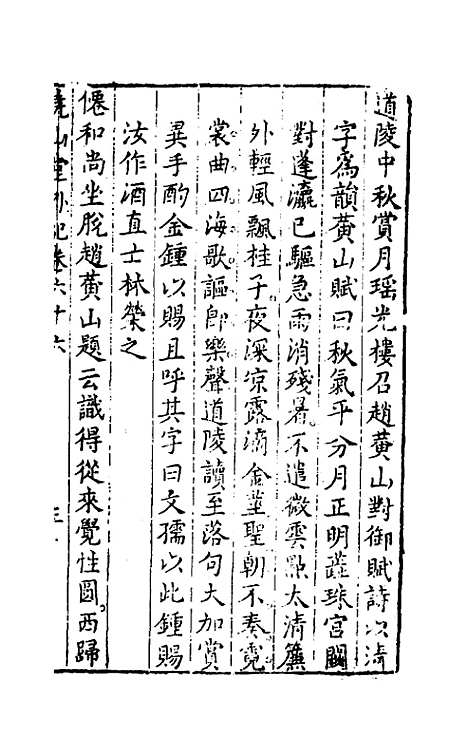 道陵中秋賞月瑶光樓召趙黃山對御賦詩以清
字爲韻黃山賦曰秋氣平分月正明蘂珠宮闕
對蓬瀛已驅急雨消殘暑不遣微雲點太清簾
外輕風飄桂子夜深凉露滴金莖聖朝不奏霓
裳曲四海歌謳卽樂聲道陵讀至落句大加賞
異手酌金鍾以賜且呼其字曰文孺以此鍾賜
汝作酒直士林榮之
僊和尚坐脫趙黃山題云識得從來覺性圓西歸
堯山堂外紀卷六十六 三